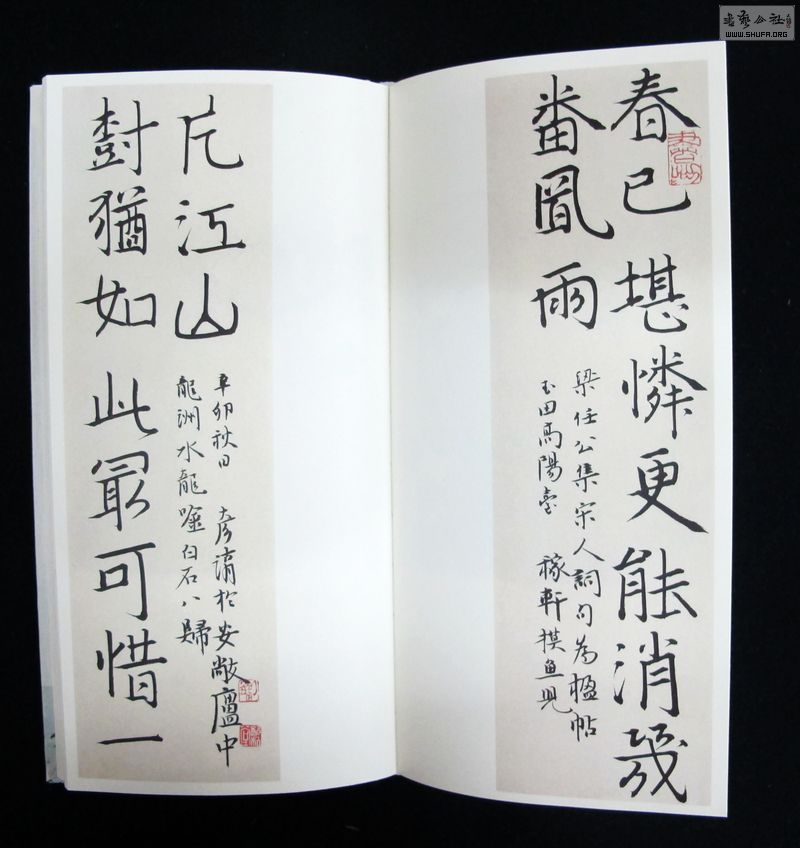 春已堪憐更能消幾
番凮雨
梁任公集宋人詞句為楹帖
玉田高陽臺 稼軒摸魚兒
樹猶如此冣可惜一
片江山
龍洲水龍唫白石八歸
辛卯秋日 於安敞廬中
書藝公社
WWW.SHUFA.ORG